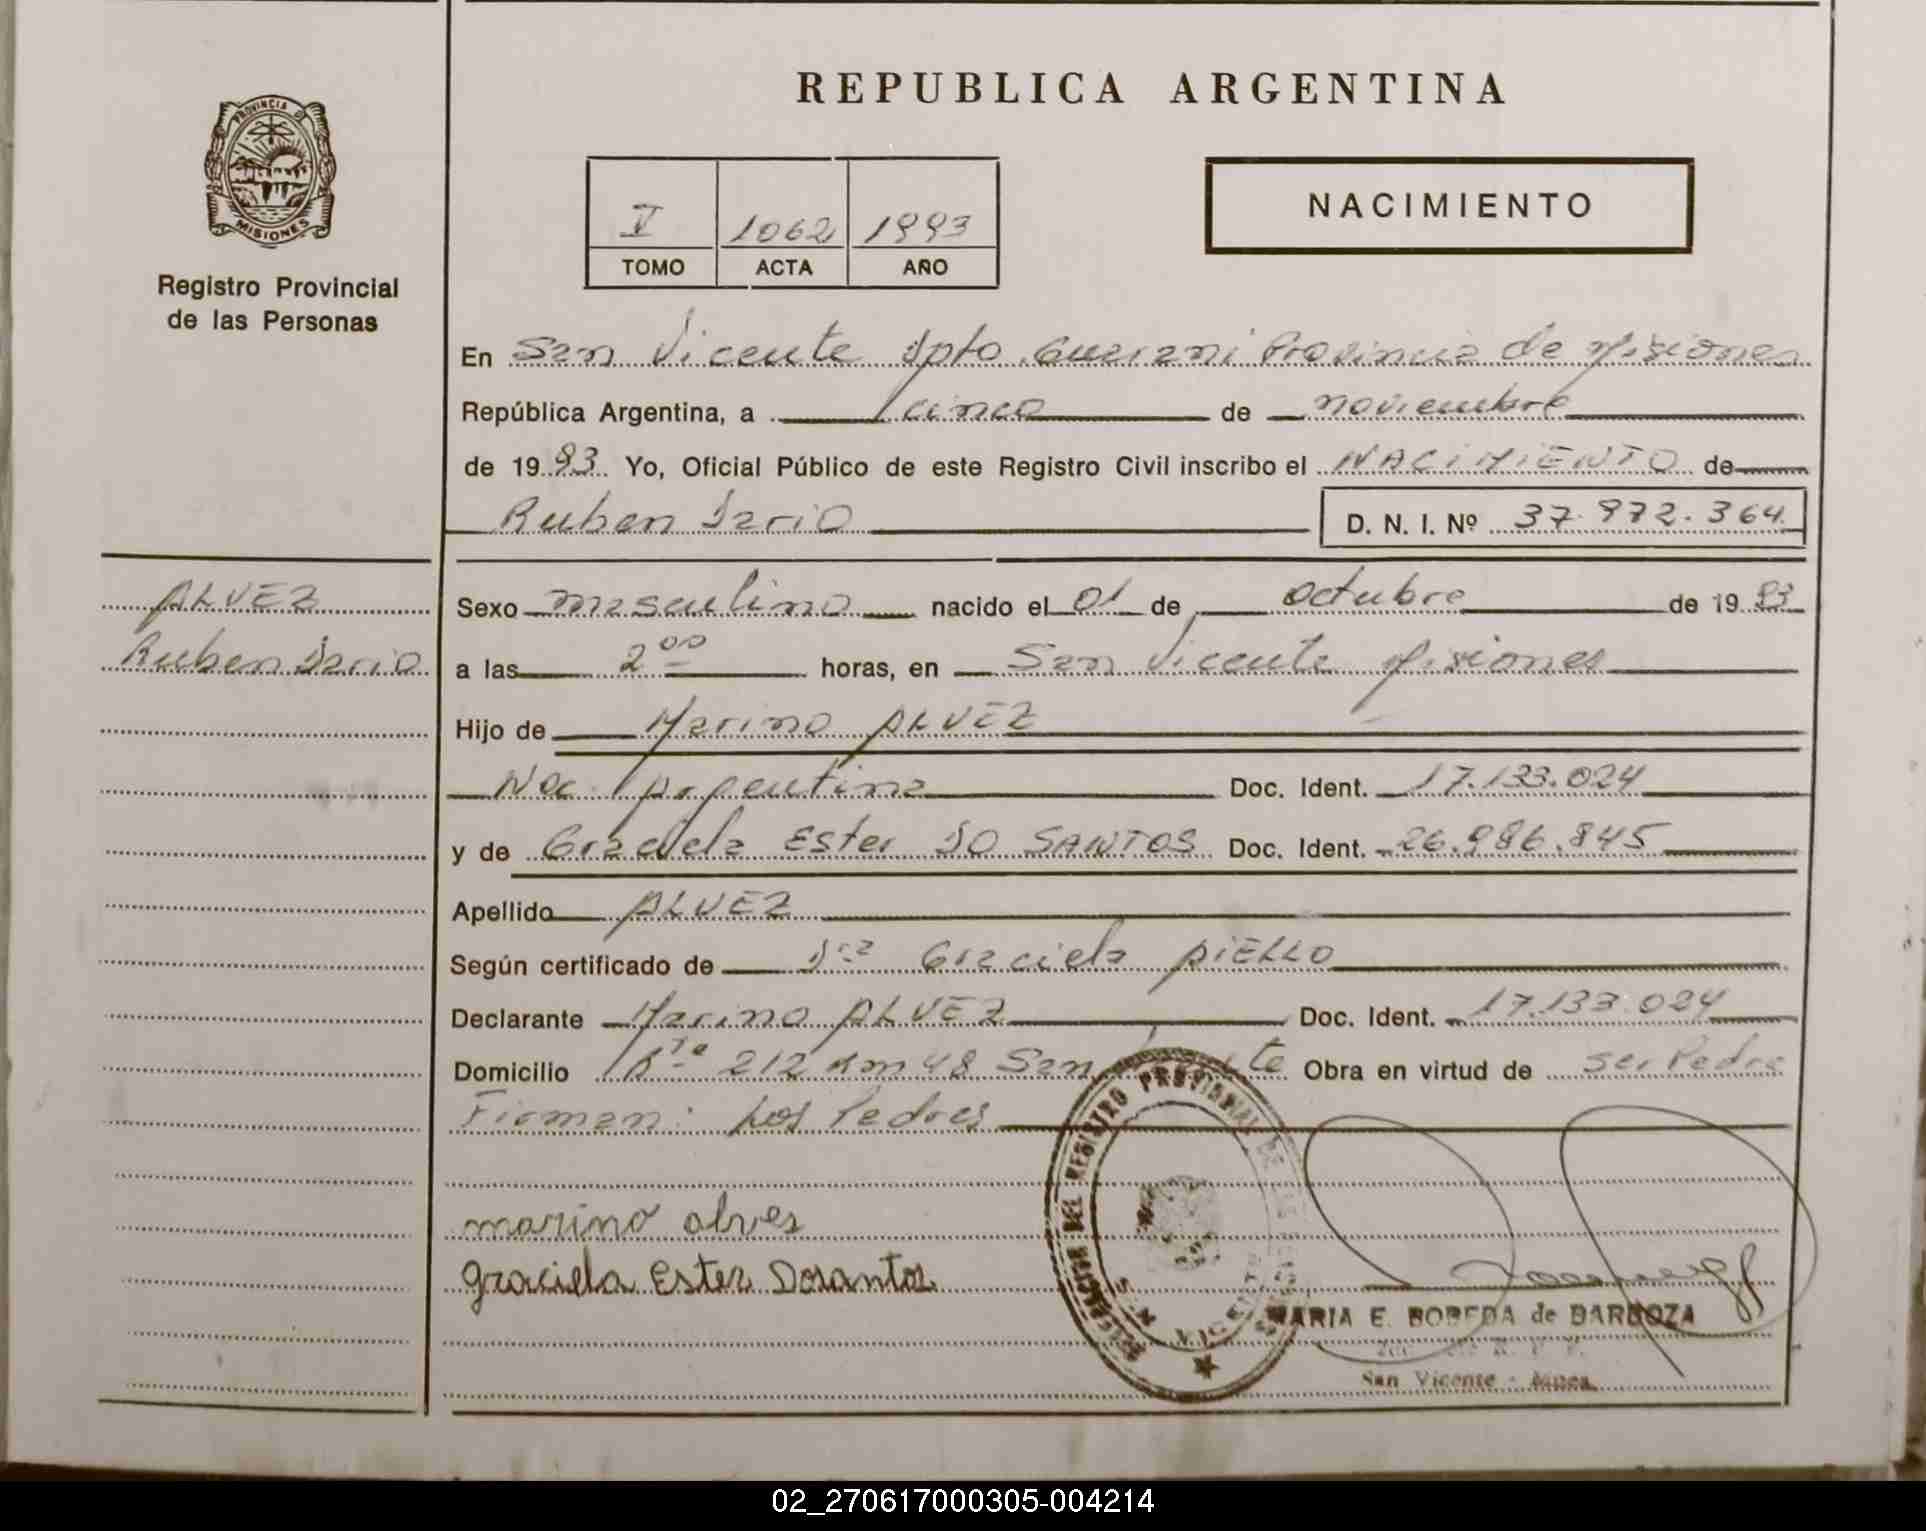 REPUBLICA ARGENTINA
PROVINCIA DE
MISIONES
Registro Provincial
de las Personas
V 1062 1993
TOMO ACTA AÑO
NACIMIENTO
En San Vicente Dpto. Guarani Provincia de Misiones
República Argentina, a cinco de noviembre
de 1993. Yo, Oficial Público de este Registro Civil inscribo el NACIMIENTO de
Ruben Dario D. N. I. Nº 37.972.364
ALVEZ
Ruben Dario
Sexo masculino nacido el 01 de octubre de 1993
a las 2 00 horas, en San Vicente Misiones
Hijo de Marino ALVEZ
Nac. Argentina Doc. Ident. 17.133.024
y de Graciela Ester DO SANTOS Doc. Ident. 26.986.845
Apellido ALVEZ
Según certificado de Dra Graciela AIELLO
Declarante Marino ALVEZ Doc. Ident. 17.133.024
Domicilio Rta 212 Km 48 San Vicente Obra en virtud de ser Padre
Firman: Los Padres
marino alves
graciela Ester Dosantos
DELEGACION DEL REGISTRO PROVINCIAL DE LAS PERSONAS
S. VICENTE
MARIA E. BOBEDA de BARBOZA
San Vicente - Mnes.
02_270617000305-004214